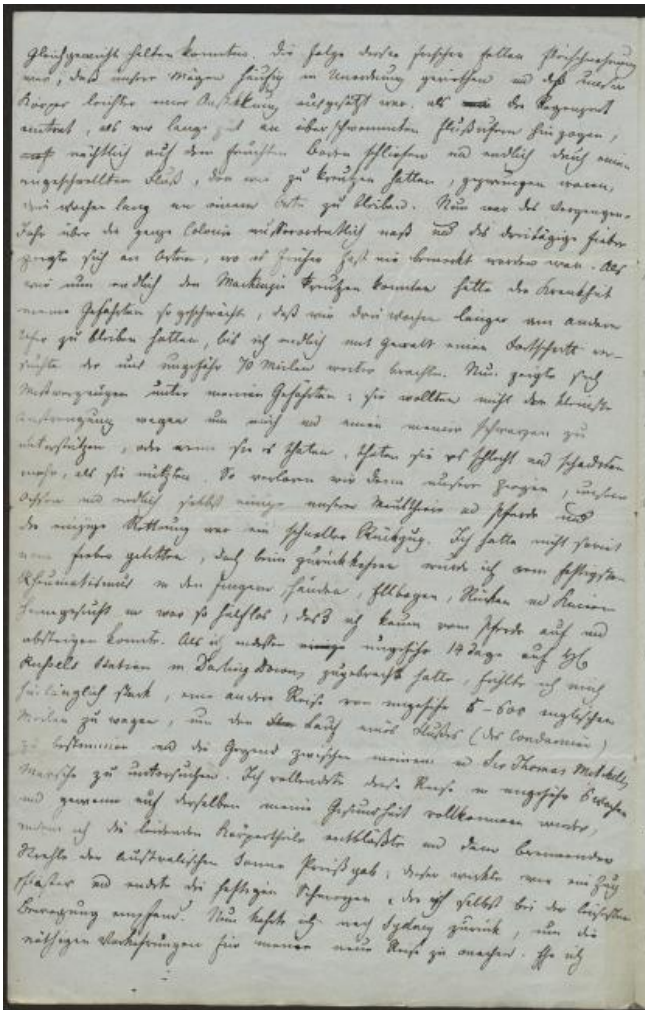 Gleichgewicht halten konnten. Die Folge dieser frischen fetten Fleischnahrung
war, daß unsere Magen häufig in Unordnung geriethen und daß unser
Körper leichter einer Ansteckung ausgesetzt war, als die Regenzeit
eintrat, als wir lange Zeit an überschwemmten Flußufern hinzogen,
nächtlich auf dem feuchten Boden schliefen und endlich durch einen
angeschwollten Fluß, den wir zu kreutzen hatten, gezwungen waren,
drei Wochen lang an einem Orte zu bleiben. Nun war das vergangene
Jahr über die ganze Colonie außerordentlich naß und das dreitägige Fieber
zeigte sich an Orten, wo es früher fast nie bemerkt worden war. Als
wir nun endlich den Mackenzie kreutzen konnten hatte die Krankheit
meine Gefährten so geschwächt, daß wir drei Wochen länger am andern
Ufer zu bleiben hatten, bis ich endlich mit Gewalt einen Fortschritt ver-
suchte der uns ungefähr 70 Meilen weiter brachte. Nun zeigte sich
Misvergnügen unter meinen Gefährten; sie wollten nicht der kleinsten
Anstrengung wegen um mich und einen meiner Schwarzen zu
unterstützen, oder wenn sie es thaten, thaten sie es schlecht und schadeten
mehr, als sie nützten. So verloren wir denn unsere Ziegen, unsere
Ochsen und endlich selbst einige unserer Maulthiere und Pferde und
die einzige Rettung war ein schneller Rückzug. Ich hatte nicht soviel
vom Fieber gelitten, doch beim Zurückkehren wurde ich vom heftigsten
Rheumatismus in den Fingern, Händen, Ellbogen, Rücken und Knieen
heimgesucht und war so hülflos, daß ich kaum vom Pferde auf und
absteigen konnte. Als ich indessen ungefähr 14 Tage auf
Russells Station in Darling Downs zugebracht hatte, fühlte ich mich
hinlänglich stark, eine andere Reise von ungefähr 5-600 englischen
Meilen zu wagen, um den Lauf eines Flußes (des Condamine)
zu bestimmen und die Gegend zwischen meinem und Sir Thomas Mitchells
Marsche zu untersuchen. Ich vollendete diese Reise in ungefähr 6 Wochen
und gewann auf derselben meine Gesundheit vollkommen wieder,
indem ich die leidenden Körpertheile entblößte und dem brennenden
Strahle der Australischen Sonne Preiß gab; dieser wirkte wie ein Zug
pflaster und endete die heftigen Schmerzen, die ich selbst bei der leisesten
Bewegung empfand. Nun kehrte ich nach Sydney zurück, um die
nöthigen Vorkehrungen für meine neue Reise zu machen. Ehe ich